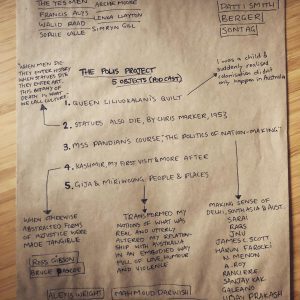 THE YES MEN
ARCHIE MOORE
FRANCIS ALYS
LENKA CLAYTON
WALID RAAD
SIMRYN GILL
SOPHIE CALLE
PATTI SMITH
BERGER
SONTAG
"WHEN MEN DIE
THEY ENTER HISTORY
WHEN STATUES DIE
THEY ENTER ART.
THIS BOTANY OF
DEATH IS WHAT
WE CALL CULTURE"
THE POLIS PROJECT
5 OBJECTS (PODCAST)
I was a child &
suddenly realised
colonisation did not
only happen in Australia
1. QUEEN LILIUOKALANI'S QUILT
2. STATUES ALSO DIE, BY CHRIS MARKER, 1953
3. MSS PANDIAN'S COURSE, 'THE POLITICS OF NATION-MAKING'
4. KASHMIR, MY FIRST VISIT & MORE AFTER
5. GIJA & MIRIWOONG PEOPLE & PLACES
WHEN OTHERWISE
ABSTRACTED FORMS
OF INJUSTICE WERE
MADE TANGIBLE
ROSS GIBSON
BRUCE PASCOE
TRANSFORMED MY
NOTIONS OF WHAT WAS
REAL AND UTTERLY
ALTERED MY RELATION-
SHIP WITH AUSTRALIA
IN AN EMBODIED WAY
FULL OF LOVE, HUMOUR
AND VIOLENCE
MAKING SENSE OF
DELHI, SOUTH ASIA & AUST.
SARAI
RAQS
JNU
JAMES C SCOTT
HARUN FAROCKI
N. MENON
A. ROY
RANCIERE
SANJAY KAK
GALEANO
UDAY PRAKASH
ALEXIS WRIGHT
MAHMOUD DARWISH